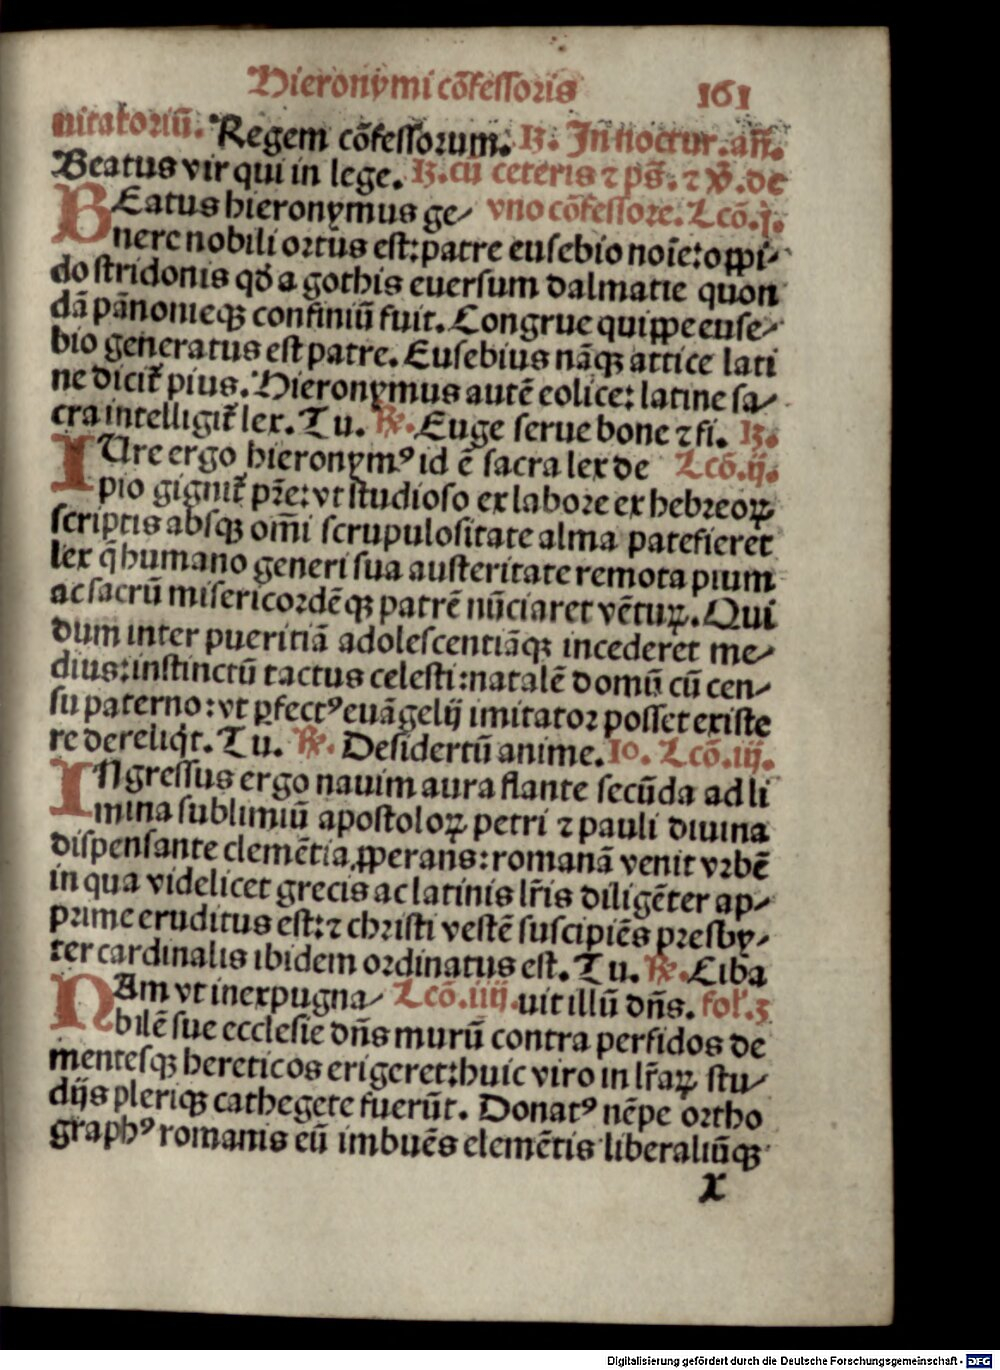 Hieronymi cōfessoris 161
nitatoriū. Regem cōfessorum. 13. In noctur. añ.
Beatus vir qui in lege. 13. cū ceteris ⁊ pš. ⁊ ꝟ. de
BEatus hieronymus ge⸗ vno cōfessore. Lcō. j.
nere nobili ortus est: patre eusebio noīe: oppi⸗
do stridonis qđ a gothis euersum dalmatie quon
dā pānonieqꝫ confiniū fuit. Congrue quippe euse⸗
bio generatus est patre. Eusebius nāqꝫ attice lati
ne dicit᷑ pius. Hieronymus autē eolice: latine sa⸗
cra intelligit᷑ lex. Tu. ℟. Euge serue bone ⁊ fi. 13.
IUre ergo hieronymꝰ id ē sacra lex de Lcō. ij.
pio gignit᷑ pr̄e: vt studioso ex labore ex hebreoꝝ
scriptis absqꝫ om̄i scrupulositate alma patefieret
lex q̄ humano generi sua austeritate remota pium
ac sacrū misericordēqꝫ patrē nūciaret vētuꝝ. Qui
dum inter pueritiā adolescentiāqꝫ incederet me⸗
dius: instinctū tactus celesti: natalē domū cū cen⸗
su paterno: vt ꝑfectꝰ euāgelij imitator posset existe
re dereliq̇t. Tu. ℟. Desideriū anime. 10. Lcō. iij.
INgressus ergo nauim aura flante secūda ad li
mina sublimiū apostoloꝝ petri ⁊ pauli diuina
dispensante clemētia ꝓperans: romanā venit vrbē
in qua videlicet grecis ac latinis lr̄is diligēter ap⸗
prime eruditus est: ⁊ christi vestē suscipiēs presby⸗
ter cardinalis ibidem ordinatus est. Tu. ℟. Ciba
NAm vt inexpugna⸗ Lcō. iiij. uit illū dn̄s. fol'. 3
bilē sue ecclesie dn̄s murū contra perfidos de
mentesqꝫ hereticos erigeret: huic viro in lr̄aꝝ stu⸗
dijs pleriqꝫ cathegete fuerūt. Donatꝰ nēpe ortho
graphꝰ romanis eū imbuēs elemētis liberaliūqꝫ
x
Digitalisierung gefördert durch die Deutsche Forschungsgemeinschaft - DFG